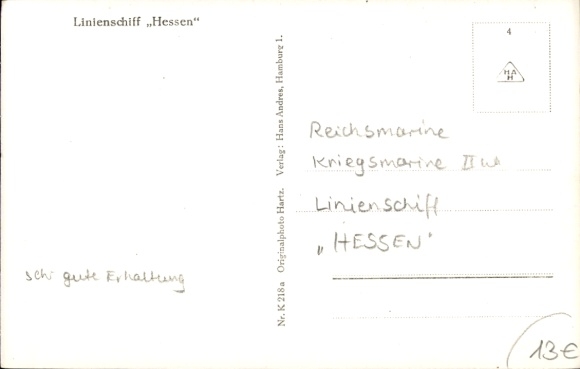 Linienschiff „Hessen“
Nr. K 218a Originalphoto Hartz. Verlag: Hans Andres, Hamburg 1.
4
HA
H
Reichsmarine
Kriegsmarine II WK
Linienschiff
„HESSEN"
sehr gute Erhaltung
13€